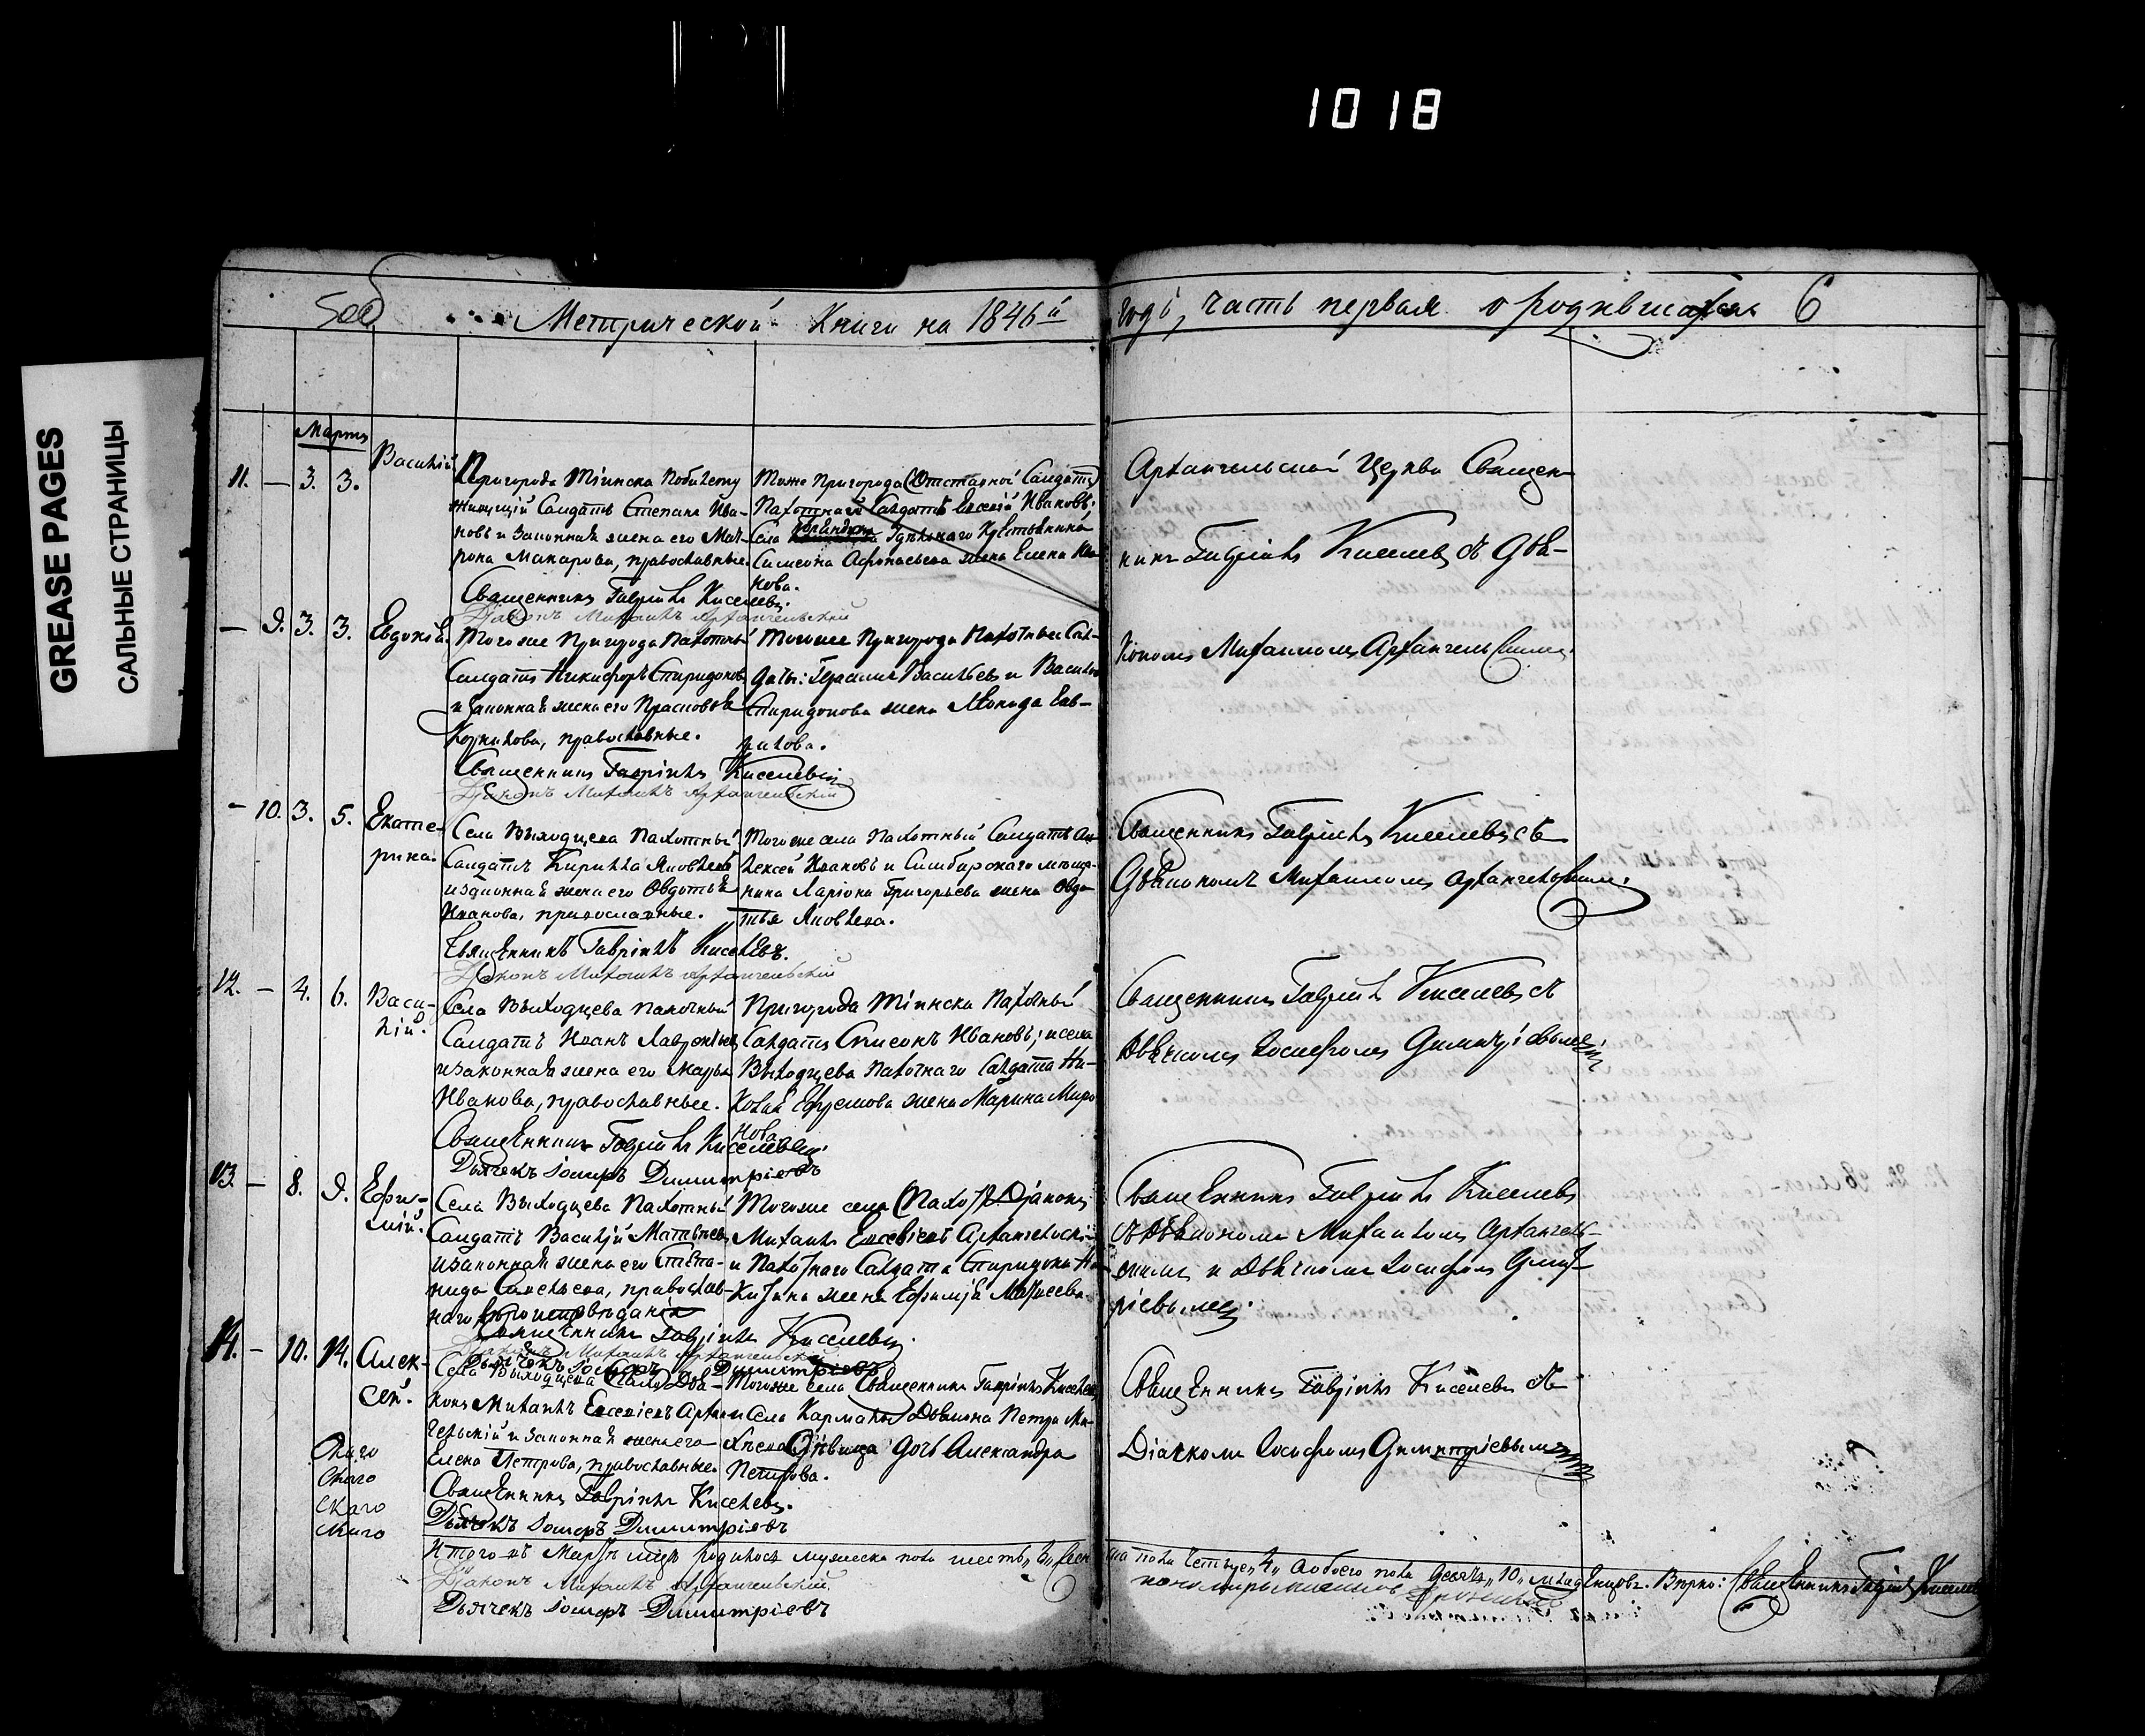 1018
GREASE PAGES
САЛЬНЫЕ СТРАНИЦЫ
Метрической Книги на 1846й годъ, часть первая о родившихся 6
Мартъ
11. — 3. 3. Василій
Пригорода Тіинска
живущій Солдатъ Степанъ Ива-
новъ и законная жена его Мат-
рона Макарова, православные.
Священникъ Гавріилъ Киселевъ.
Діаконъ Михаилъ Архангельскій
Тогоже пригорода Отставной Солдатъ
Пахотный Солдатъ Евсевій Ивановъ;
Села Удѣльнаго Крестьянина
Симеона Афонасьева жена Елена Ива-
нова.
Архангельской Церкви Священ-
никъ Гавріилъ Киселевъ съ Діа-
кономъ Михаиломъ Архангельскимъ.
— 9. 3. 3. Евдокія.
Тогоже Пригорода Пахотный
Солдатъ Никифоръ Спиридоновъ
и законная жена его Прасковья
Корнилова, православные.
Священникъ Гавріилъ Киселевъ
Діаконъ Михаилъ Архангельскій
Тогоже Пригорода Пахотные Сол-
даты: Герасимъ Васильевъ и Василья
Спиридонова жена Гав-
рилова.
— 10. 3. 5. Екате-
рина.
Села Выходцева Пахотный
Солдатъ Кирилла Яковлевъ
и законная жена его Овдотья
Иванова, православные.
Священникъ Гавріилъ Киселевъ.
Діаконъ Михаилъ Архангельскій
Тогоже села Пахотный Солдатъ Але-
ксей Ивановъ и Симбирскаго мѣща-
нина Ларіона Григорьева жена Овдо-
тья Яковлева.
Священникъ Гавріилъ Киселевъ съ
Діакономъ Михаиломъ Архангельскимъ.
12. — 4. 6. Васи-
лій.
Села Выходцева Пахотный
Солдатъ Иванъ Лаврентьевъ
и законная жена его Марья
Иванова, православные.
Священникъ Гавріилъ Киселевъ.
Дьячекъ Іосифъ Димитріевъ
Пригорода Тіинска Пахотный
Солдатъ Симеонъ Ивановъ; и села
Выходцева Пахотнаго Солдата Ни-
колая Ефремова жена Марина Миро-
нова.
Священникъ Гавріилъ Киселевъ съ
Дьячкомъ Іосифомъ Димитріевымъ
13. — 8. 9. Ефи-
мій.
Села Выходцева Пахотный
Солдатъ Василій Матвѣевъ
и законная жена его Степа-
нида Савельева, православ-
наго вѣроисповѣданія
Священникъ Гавріилъ Киселевъ.
Діаконъ Михаилъ Архангельскій
Дьячекъ Іосифъ Димитріевъ
Тогоже села Діаконъ
Михаилъ Евсевіевъ Архангельскій
и Пахотнаго Солдата Спиридона Ни-
китина жена Ефимія Моисеева.
Священникъ Гавріилъ Киселевъ
съ Діакономъ Михаиломъ Архангель-
скимъ и Дьячкомъ Іосифомъ Димит-
ріевымъ.
14. — 10. 14. Алек-
сей.
Села Выходцева Діа-
конъ Михаилъ Евсевіевъ Архан-
гельскій и законная жена его
Елена Петрова, православные.
Священникъ Гавріилъ Киселевъ.
Дьячекъ Іосифъ Димитріевъ
Тогоже села Священникъ Гавріилъ Киселевъ,
и Села Кармалы Діакона Петра Ми-
хѣева Дѣвица дочь Александра
Петрова.
Священникъ Гавріилъ Киселевъ съ
Діачкомъ Іосифомъ Димитріевымъ
Итого въ Мартѣ мцѣ родилось мужеска пола шесть, женска пола четыре, 4, а обоего пола десять, 10, младенцовъ. Вѣрно: Священникъ Гавріилъ Киселевъ
Діаконъ Михаилъ Архангельскій
Дьячекъ Іосифъ Димитріевъ